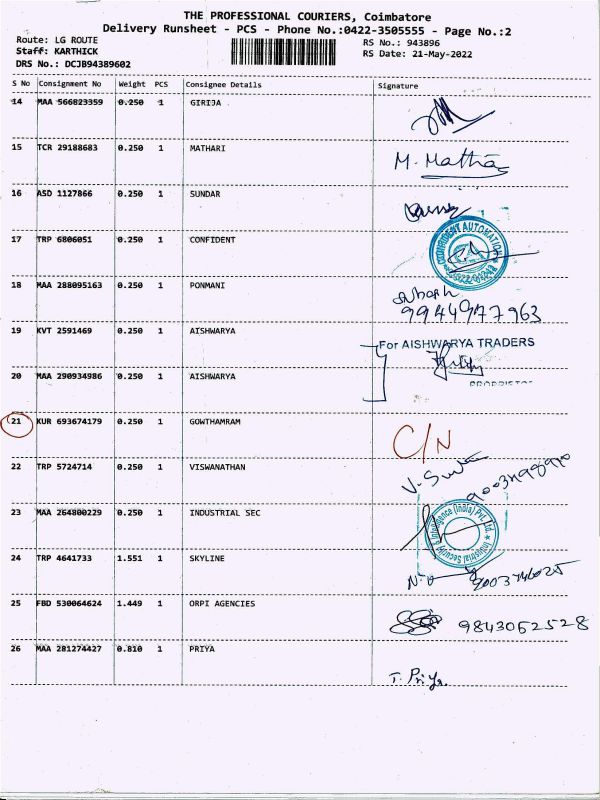 THE PROFESSIONAL COURIERS, Coimbatore
Delivery Runsheet - PCS - Phone No.:0422-3505555 - Page No.:2
Route: LG ROUTE
Staff: KARTHICK
DRS No.: DCJB94389602
RS No.: 943896
RS Date: 21-May-2022
S No Consignment No Weight PCS Consignee Details Signature
14 MAA 566823359 0.250 1 GIRIJA
15 TCR 29188683 0.250 1 MATHARI M. Matha
16 ASD 1127866 0.250 1 SUNDAR
17 TRP 6806051 0.250 1 CONFIDENT CONFIDENT AUTOMATION
18 MAA 288095163 0.250 1 PONMANI
9944977963
19 KVT 2591469 0.250 1 AISHWARYA For AISHWARYA TRADERS
20 MAA 290934986 0.250 1 AISHWARYA
21 KUR 693674179 0.250 1 GOWTHAMRAM C/N
22 TRP 5724714 0.250 1 VISWANATHAN
23 MAA 264800229 0.250 1 INDUSTRIAL SEC Industrial Security & Intelligence (India) Pvt. Ltd.
24 TRP 4641733 1.551 1 SKYLINE
25 FBD 530064624 1.449 1 ORPI AGENCIES 9843062528
26 MAA 281274427 0.810 1 PRIYA
T. Priya